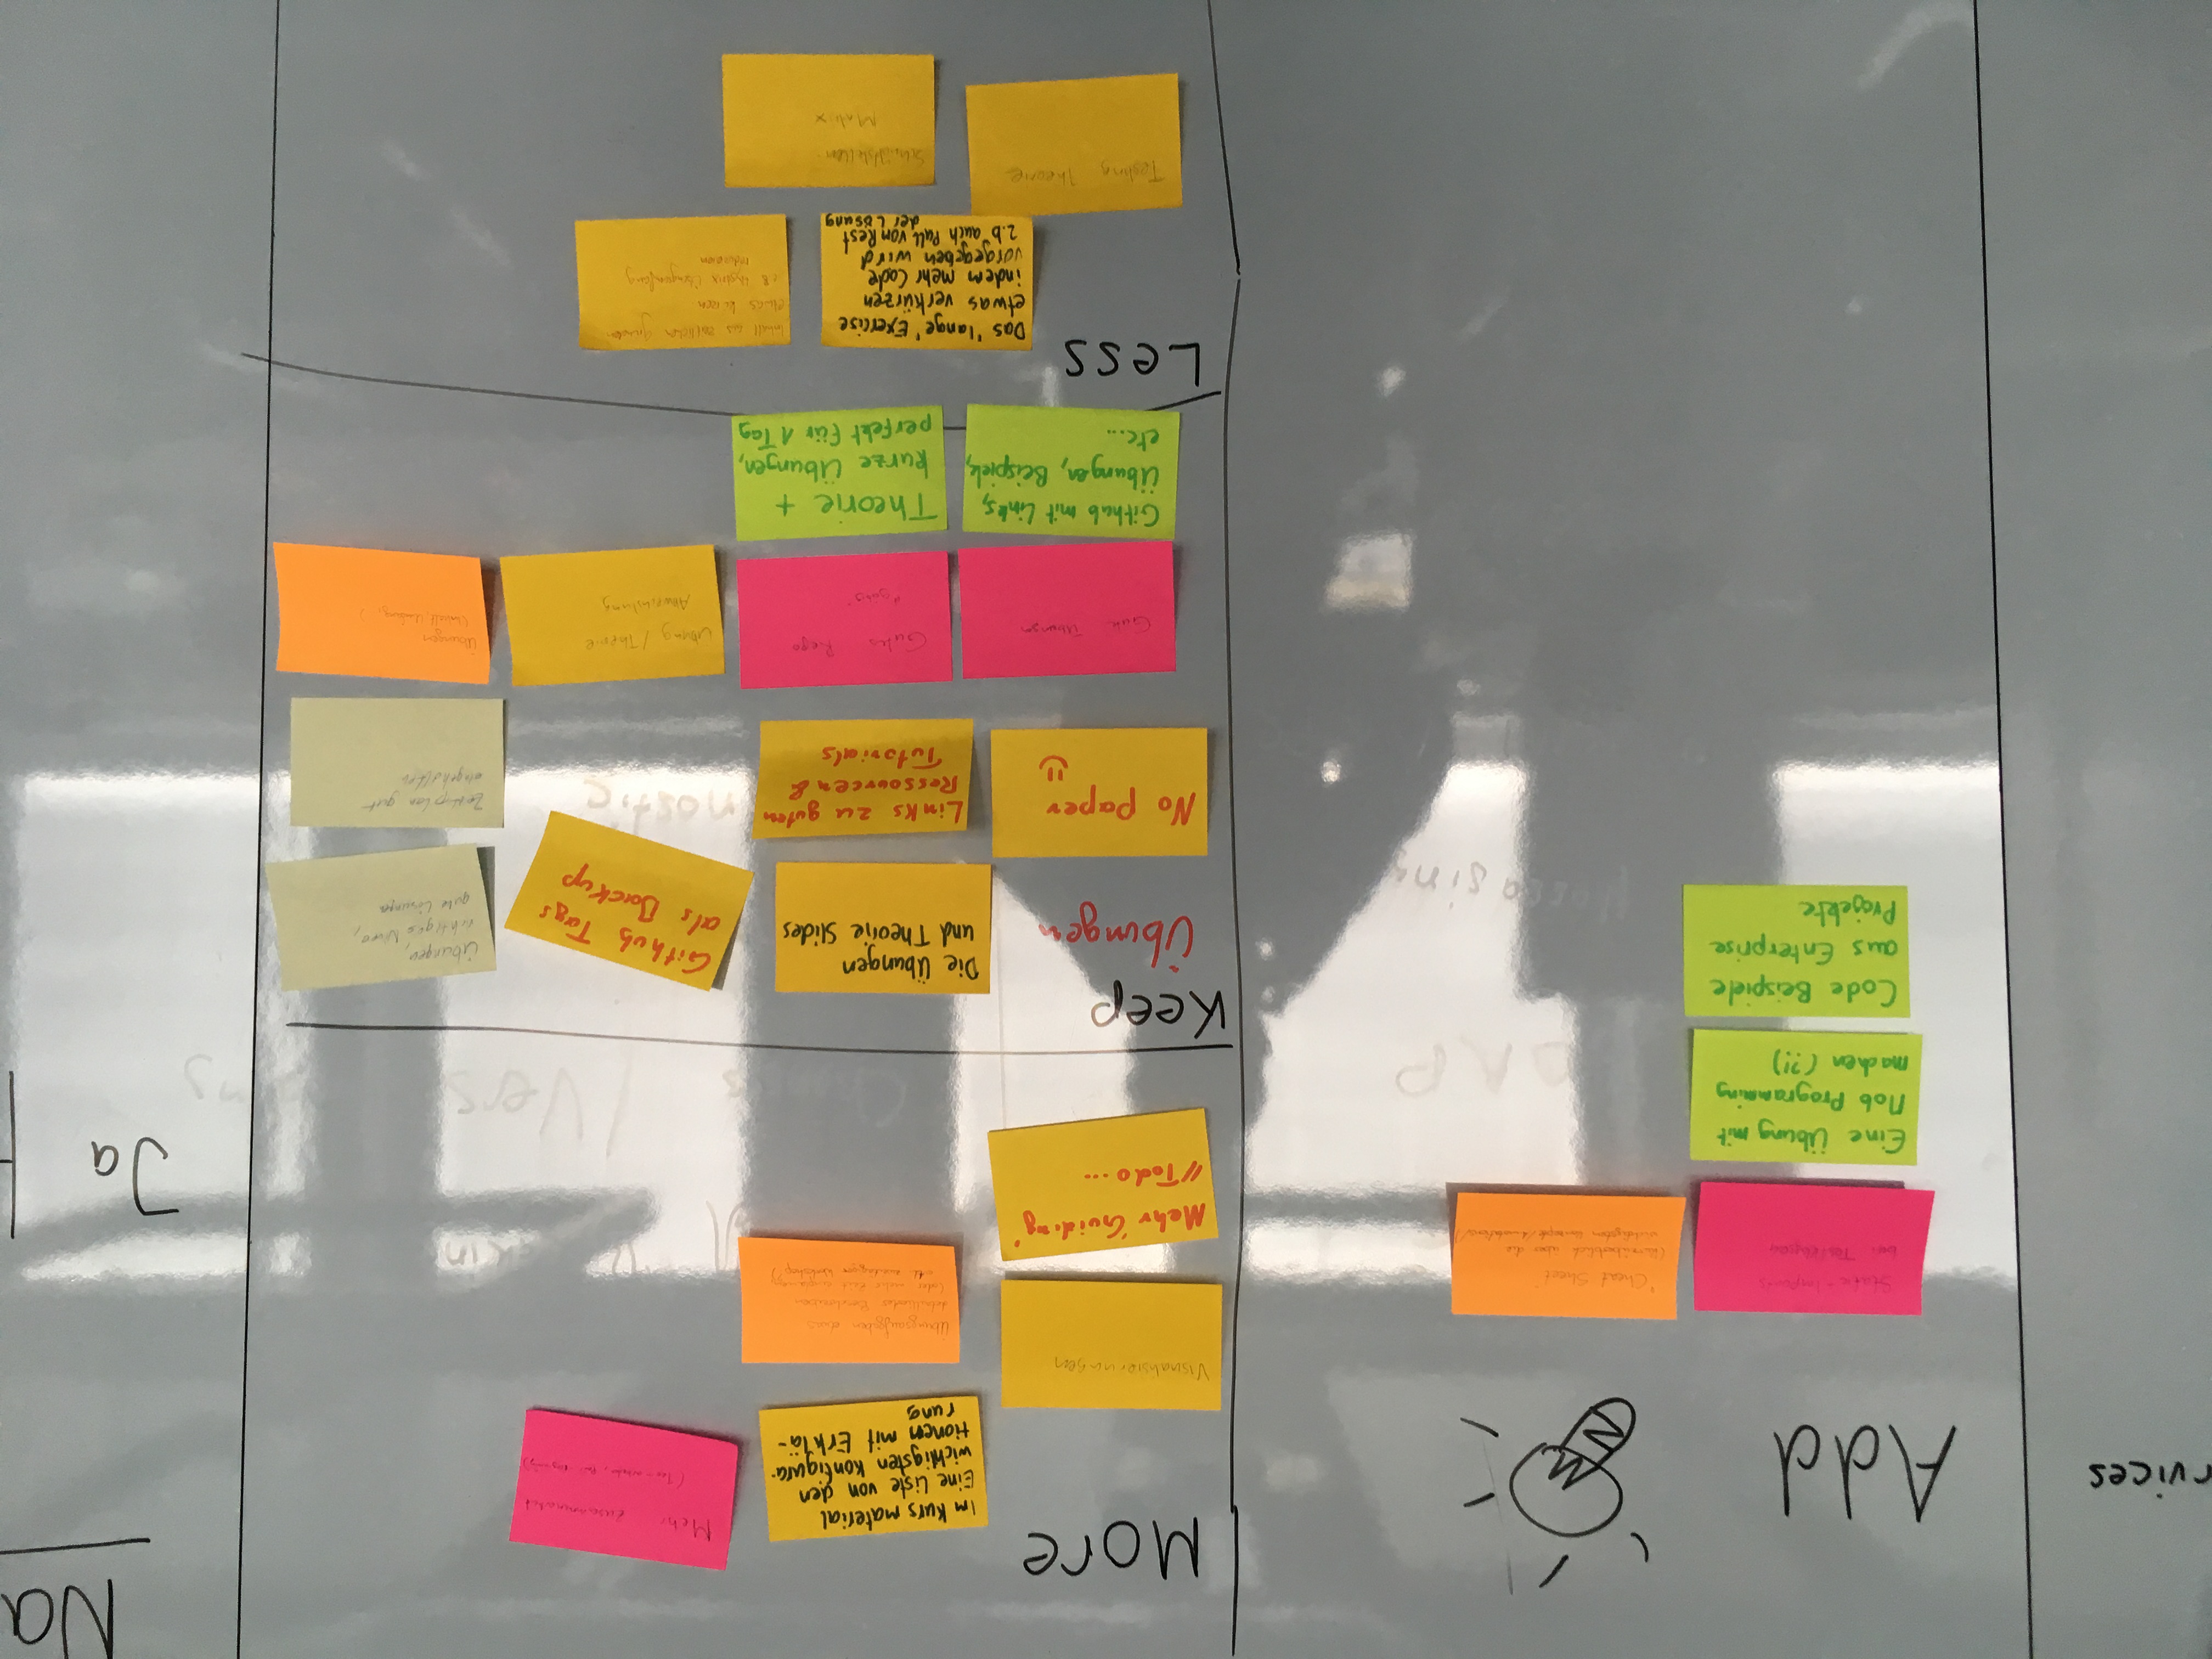 rvices
Add
Static-Imports
bei Testklassen
"Cheat Sheet"
(Kurzüberblick über die
wichtigsten Konzepte/Annotations/)
Eine Übung mit
Mob Programming
machen (?!)
Code Beispiele
aus Enterprise
Projekte
More
Im Kurs material
Eine Liste von den
wichtigsten Konfigura-
tionen mit Erklä-
rung
Mehr Zusammenarbeit
Visualisierungen
Übungsaufgaben etwas
detaillierter Beschreiben
(oder mehr Zeit einplanen,
Workshop?)
Mehr 'Guiding'
// Todo...
Keep
Übungen
Die Übungen
und Theorie Slides
Github Tags
als Backup
Übungen,
richtiges Niveau,
gute Lösungen
No paper
Links zu guten
Ressourcen &
Tutorials
Zeitplan gut
eingehalten
Gute Übungen
Gutes Repo
Übung / Theorie
Abwechslung
Übungen
(Inhalt, Umfang, )
Github mit Links,
Übungen, Beispiele,
etc...
Theorie +
kurze Übungen,
perfekt für 1 Tag
Less
Das 'lange' Exercise
etwas verkürzen
indem mehr Code
vorgegeben wird
z.b auch Pull von Rest
der Lösung
Inhalt aus zeitlichen Gründen
etwas kürzen
z.B Hystrix Übungsumfang
reduzieren
Testing Theorie
Schnittstellen-
Matrix
Na
Ja